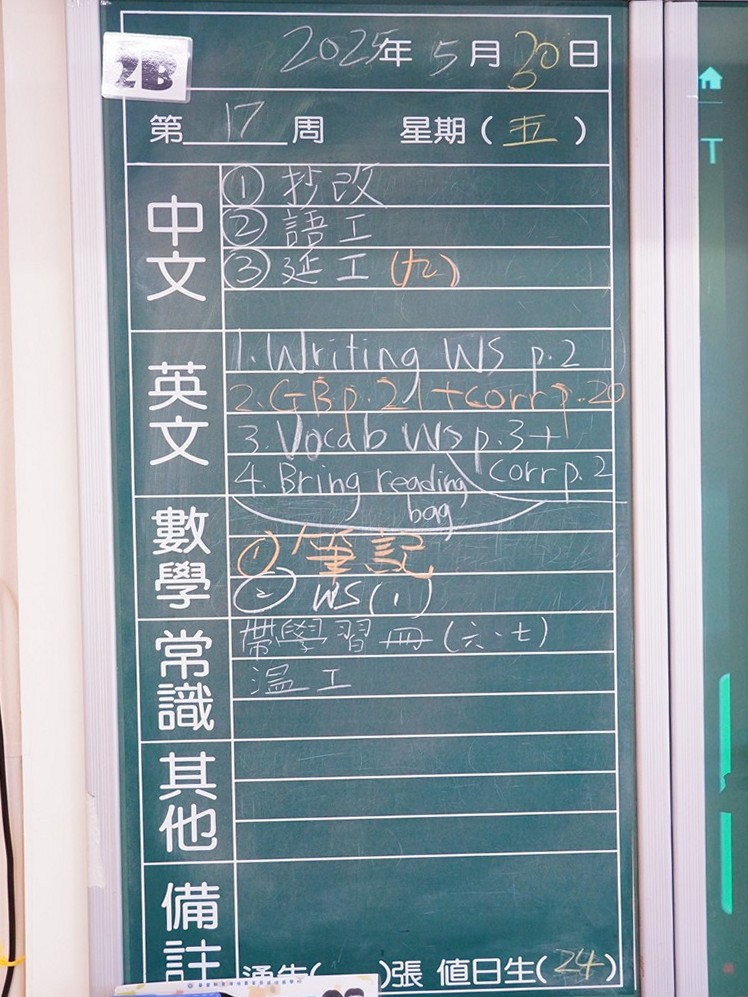 2B
2025年5月30日
第17周 星期(五)
中文
① 抄改
② 語工
③ 延工 (九)
英文
1. Writing WS p.2
2. GB p.21+corr p.20
3. Vocab WS p.3+
corr p.2
4. Bring reading
bag
數學
① 筆記
② WS(1)
常識
帶學習冊(六、七)
溫工
其他
備註
通告( )張 值日生(24)
T